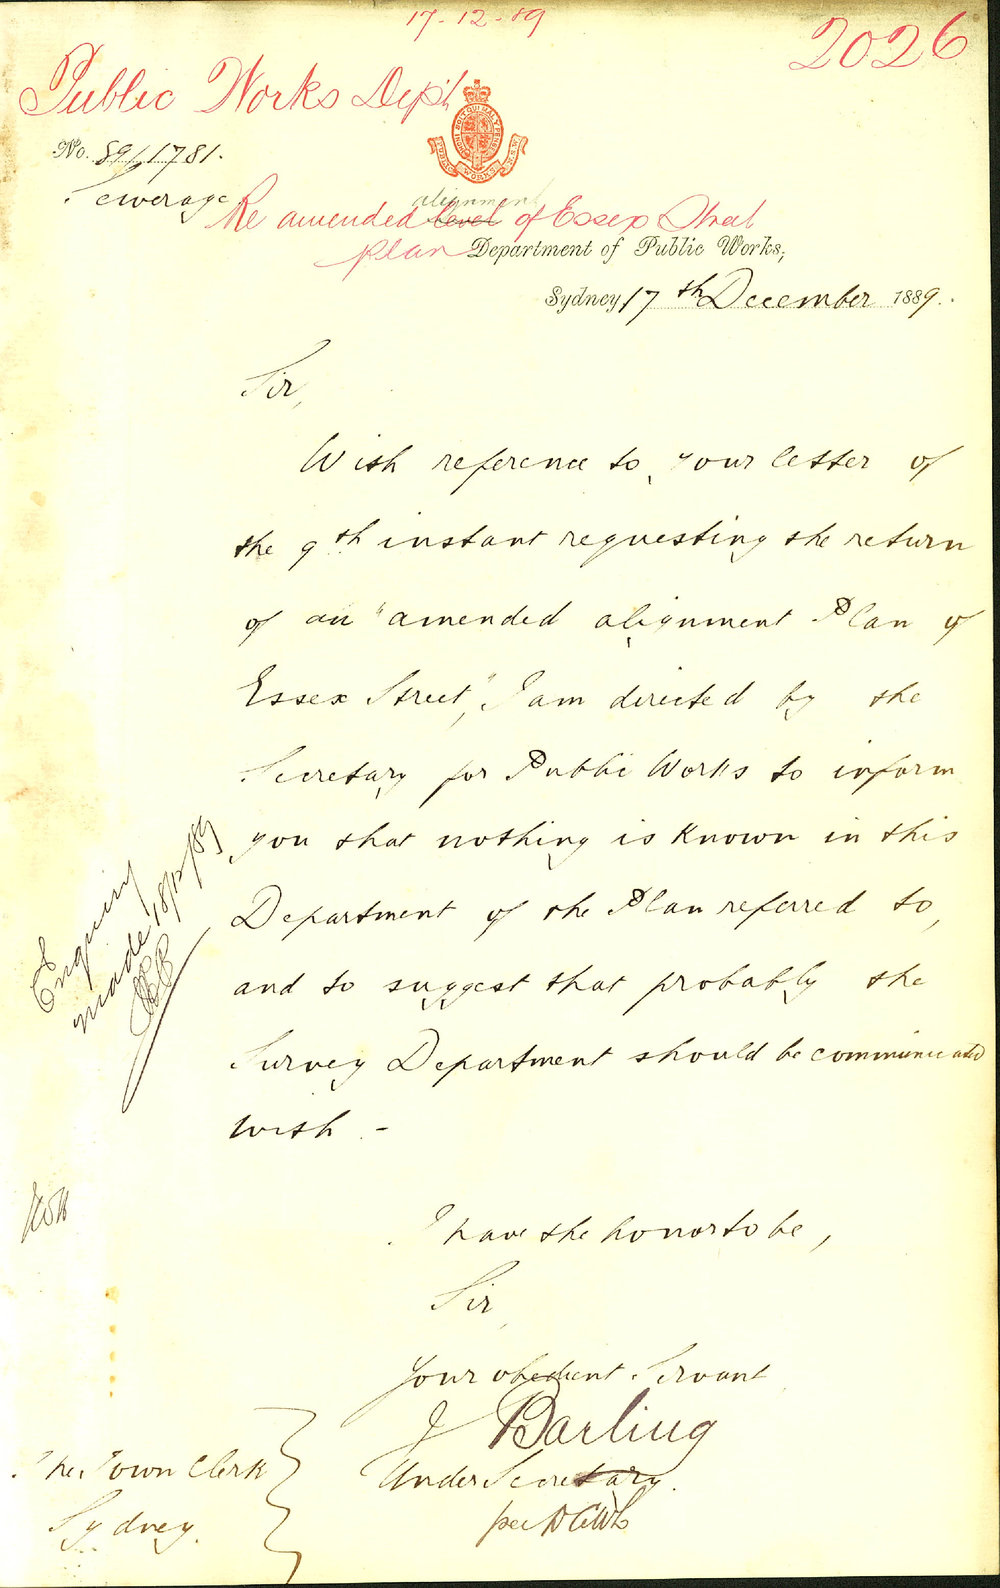 17-12-89
2026
Public Works Dept
No. 89/1781.
Sewerage
alignment
Re amended level of Essex Street
plan
Department of Public Works,
Sydney 17th December 1889.
Sir,
With reference to your letter of
the 9th instant requesting the return
of an "amended alignment Plan of
Essex Street", I am directed by the
Secretary for Public Works to inform
you that nothing is known in this
Department of the Plan referred to,
and to suggest that probably the
Survey Department should be communicated
with -
Enquiry
made 18/12/89
I have the honor to be,
Sir,
Your obedient Servant
J Barling
Under Secretary.
per
The Town Clerk
Sydney.